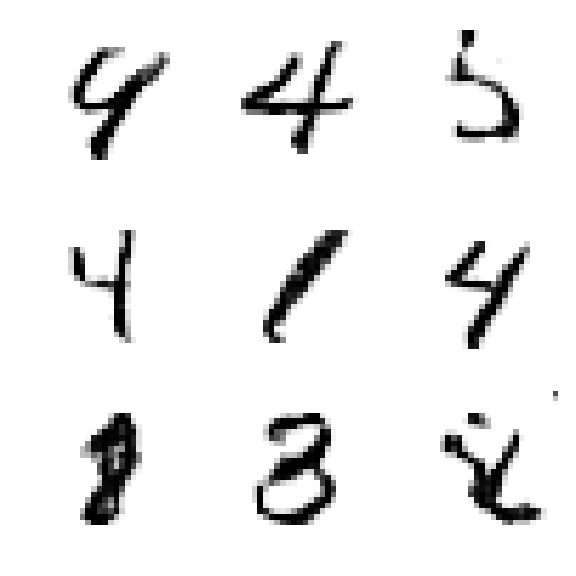 4 4 5
4 1 4
8 8